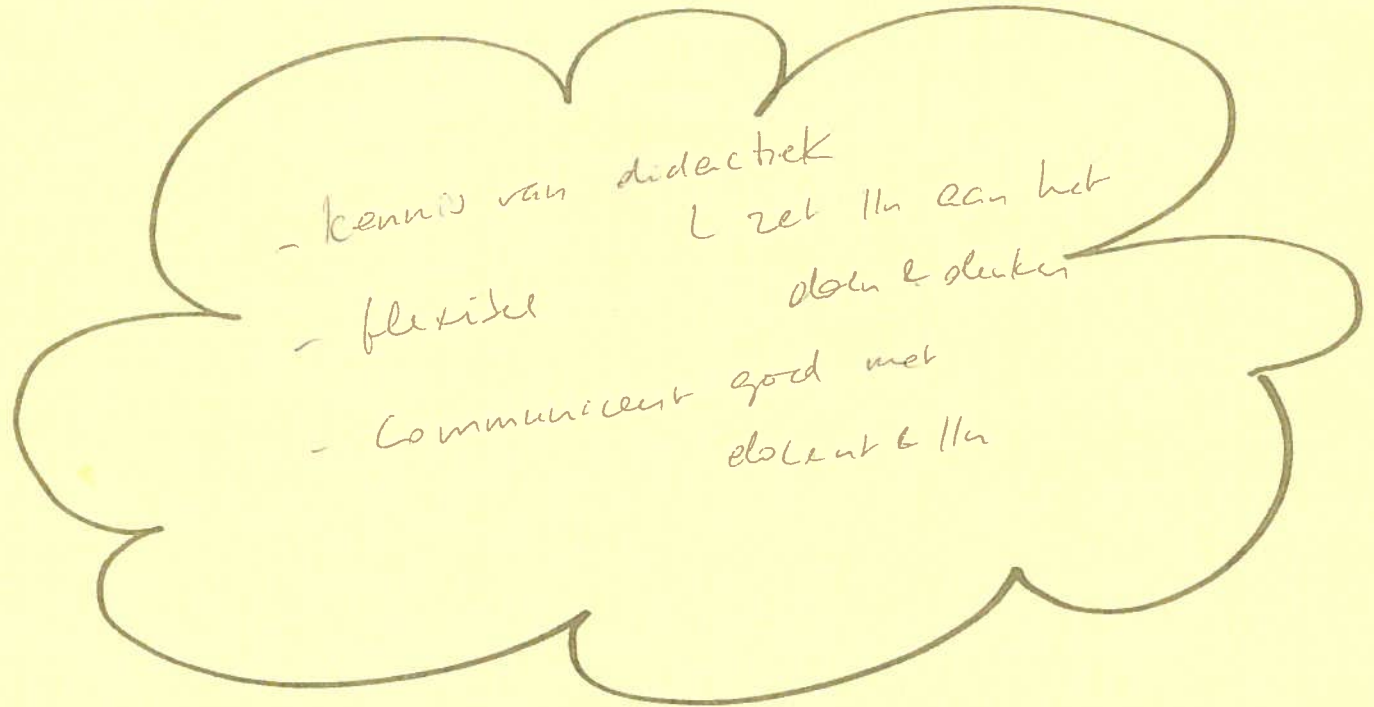 - kennis van didactiek
L zet lln aan het
doen & denken
- flexibel
- Communiceert goed met
docent & lln